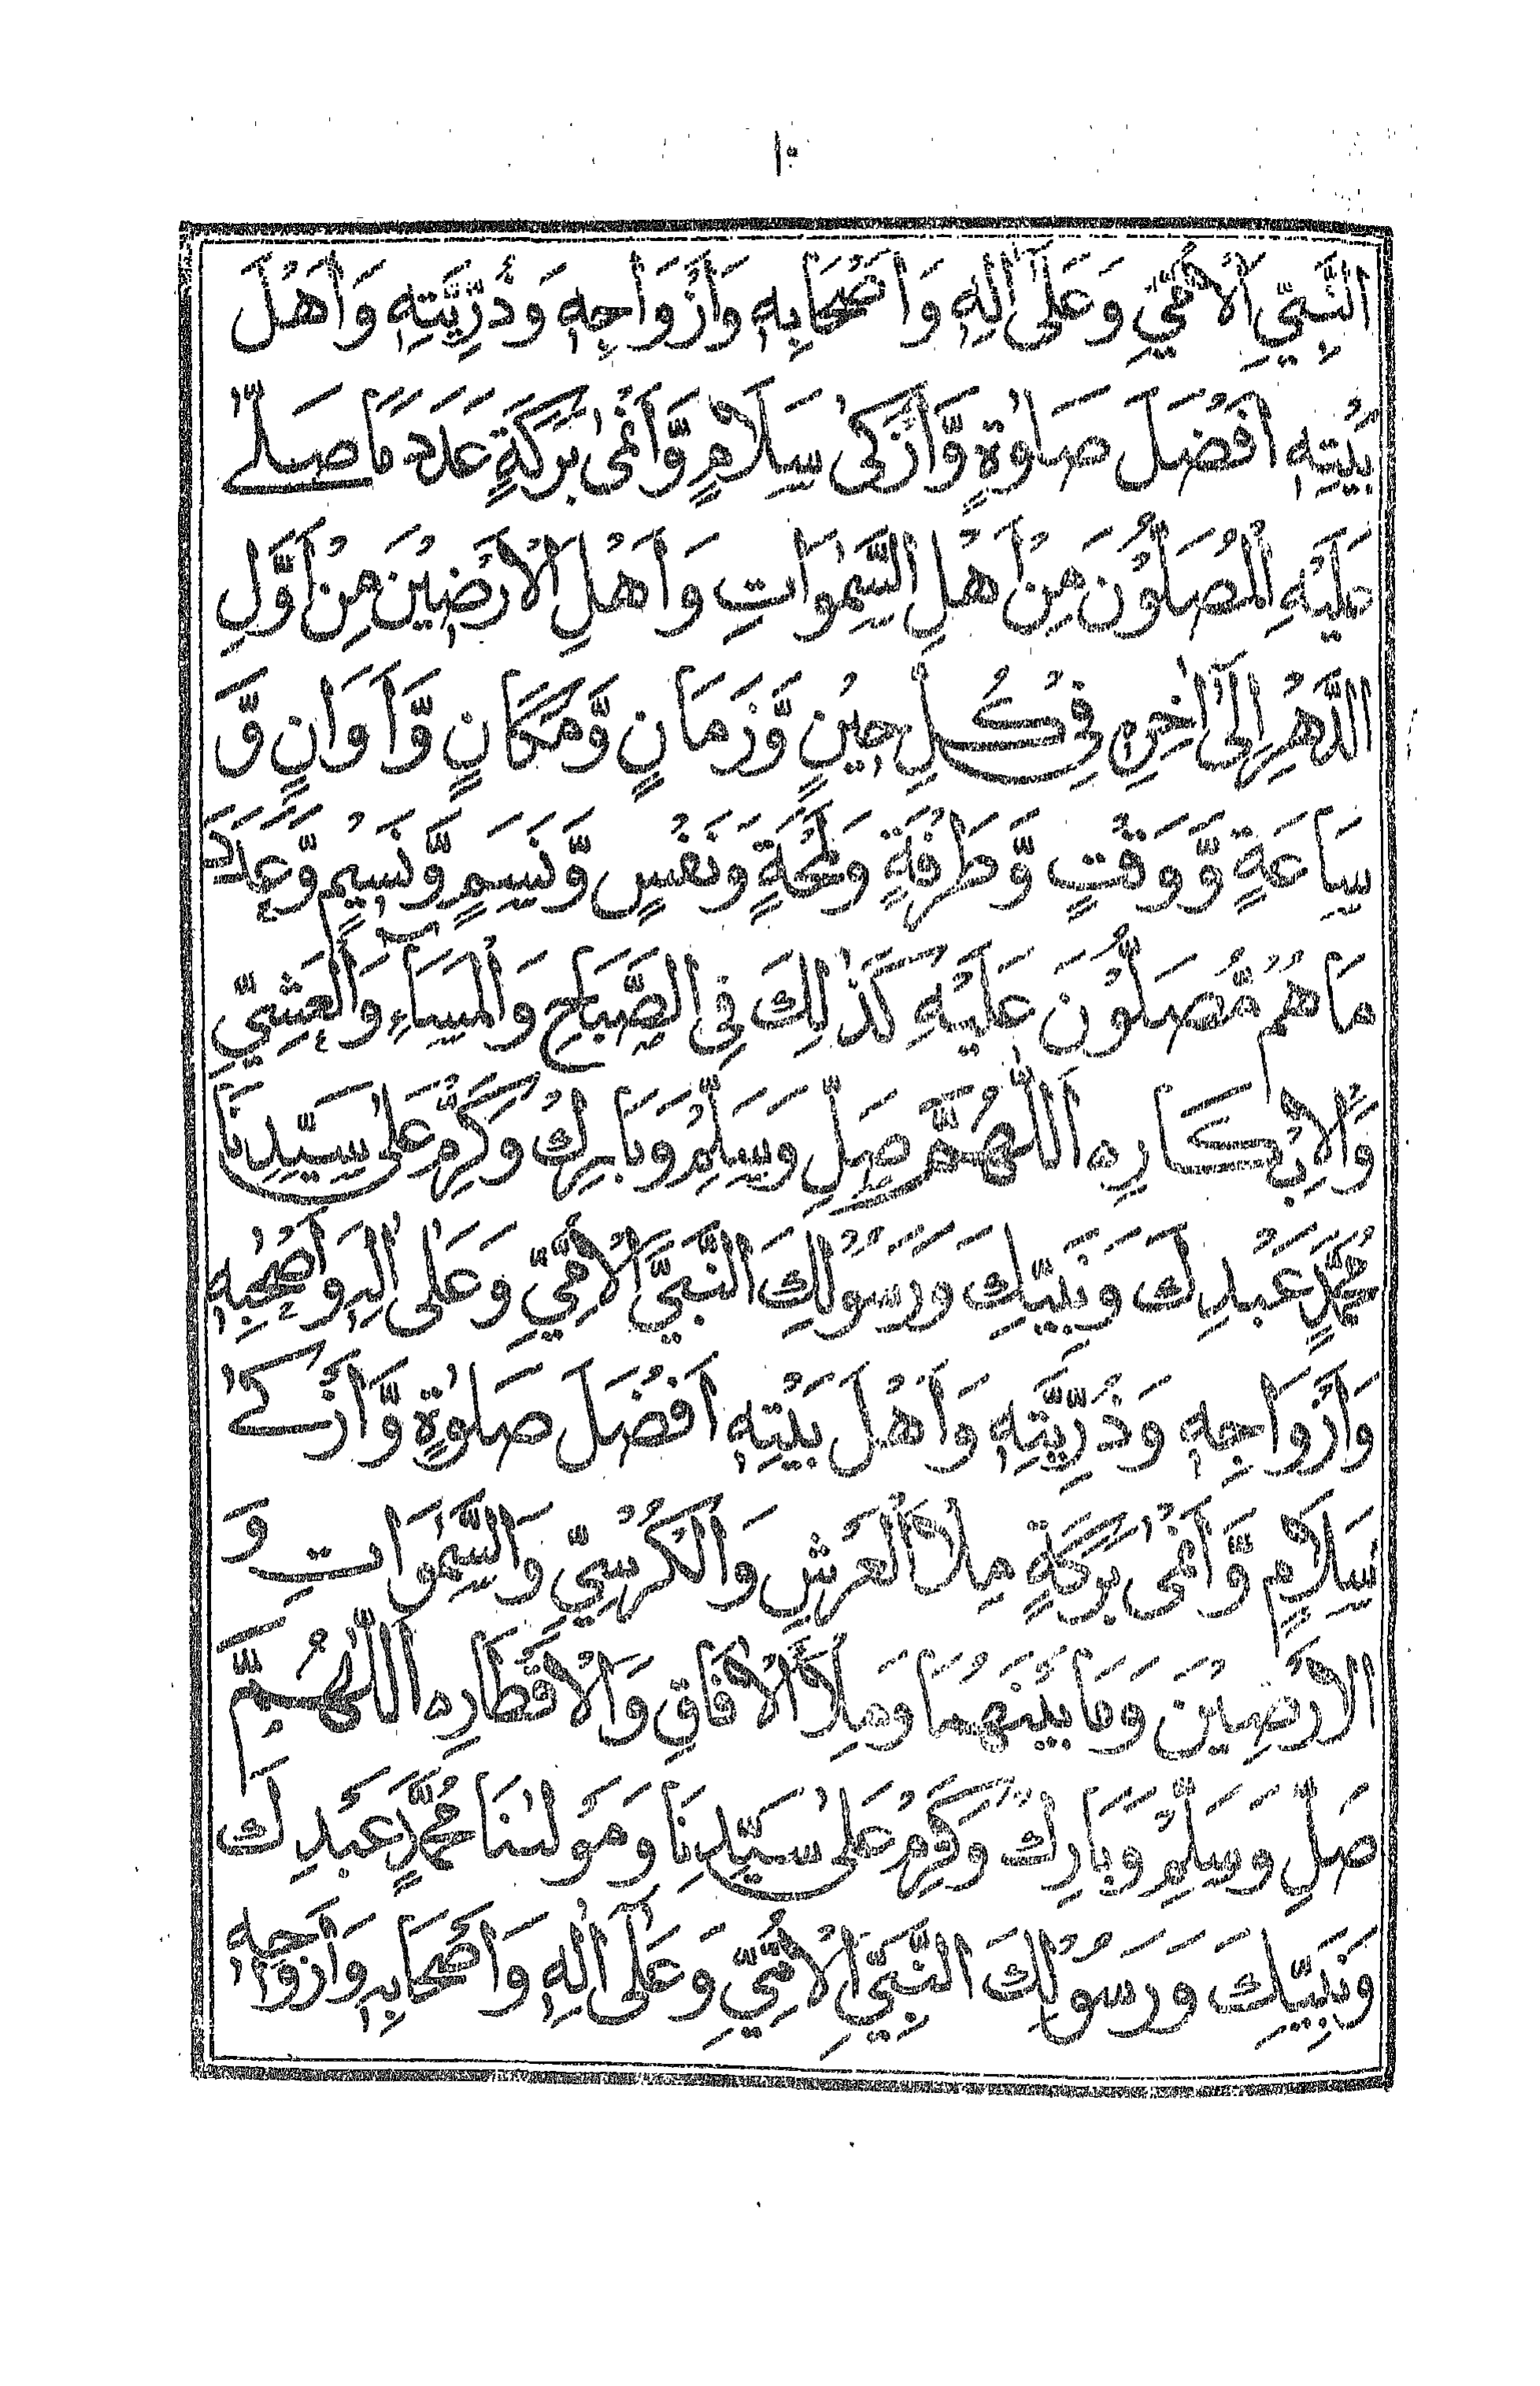 ١٠
النَّبِيِّ الْاُمِّيِّ وَعَلٰٓى اٰلِهٖ وَاَصْحَابِهٖ وَاَزْوَاجِهٖ وَذُرِّيَّتِهٖ وَاَهْلَ
بَيْتِهٖ اَفْضَلَ صَلٰوةٍ وَّاَزْكٰى سَلَامٍ وَّاَنْمٰى بَرَكَةٍ عَدَدَ مَا صَلّٰے
عَلَيْهِ الْمُصَلُّوْنَ مِنْ اَهْلِ السَّمٰوَاتِ وَاَهْلِ الْاَرْضِيْنَ مِنْ اَوَّلِ
الدَّهْرِ اِلٰٓى اٰخِرِهٖ فِيْ كُلِّ حِيْنٍ وَّزَمَانٍ وَّمَكَانٍ وَّاَوَانٍ وَّ
سَاعَةٍ وَّوَقْتٍ وَّطَرْفَةٍ وَلَمْحَةٍ وَنَفْسٍ وَّنَسَمٍ وَّنَسِيْمٍ وَّعَدَدَ
مَا هُمْ مُّصَلُّوْنَ عَلَيْهِ كَذٰلِكَ فِي الصَّبَاحِ وَالْمَسَاءِ وَالْعَشِيِّ
وَالْاِبْكَارِ ه اَللّٰهُمَّ صَلِّ وَسَلِّمْ وَبَارِكْ وَكَرِّمْ عَلٰى سَيِّدِنَا
مُحَمَّدٍ عَبْدِكَ وَنَبِيِّكَ وَرَسُوْلِكَ النَّبِيِّ الْاُمِّيِّ وَعَلٰى اٰلِهٖ وَاَصْحٰبِهٖ
وَاَزْوَاجِهٖ وَذُرِّيَّتِهٖ وَاَهْلَ بَيْتِهٖ اَفْضَلَ صَلٰوةٍ وَّاَزْكٰے
سَلَامٍ وَّاَنْمٰى بَرَكَةٍ مِلْأَ الْعَرْشِ وَالْكُرْسِيِّ وَالسَّمٰوَاتِ وَ
الْاَرْضِيْنَ وَمَا بَيْنَهُمَا وَمِلْأَ الْاٰفَاقِ وَالْاَقْطَارِ ه اَللّٰهُمَّ
صَلِّ وَسَلِّمْ وَبَارِكْ وَكَرِّمْ عَلٰى سَيِّدِنَا وَمَوْلٰنَا مُحَمَّدٍ عَبْدِكَ
وَنَبِيِّكَ وَرَسُوْلِكَ النَّبِيِّ الْاُمِّيِّ وَعَلٰٓى اٰلِهٖ وَاَصْحَابِهٖ وَاَزْوَاجِهٖ